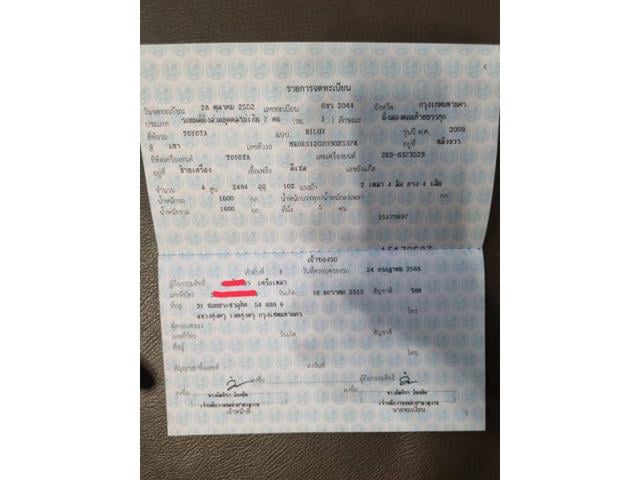 4
รายการจดทะเบียน
วันจดทะเบียน 28 ตุลาคม 2552 เลขทะเบียน 2044 จังหวัด กรุงเทพมหานคร
ประเภท รถยนต์นั่งส่วนบุคคลไม่เกิน 7 คน (รย. 1 ) ลักษณะ นั่งสองตอนท้ายบรรทุก
ยี่ห้อรถ TOYOTA แบบ HILUX รุ่นปี ค.ศ. 2009
สี เทา เลขตัวรถ อยู่ที่
ยี่ห้อเครื่องยนต์ TOYOTA เลขเครื่องยนต์ 2KD-6373529
อยู่ที่ เชื้อเพลิง ดีเซล เลขถังแก๊ส
จำนวน 4 สูบ 2494 ซีซี 102 แรงม้า 2 เพลา 4 ล้อ ยาง 4 เส้น
น้ำหนักรถ 1600 กก. น้ำหนักบรรทุก/น้ำหนักลงเพลา กก.
น้ำหนักรวม 1600 กก. ที่นั่ง 5 คน
15170697
15170697
เจ้าของรถ
ลำดับที่ 1 วันที่ครอบครองรถ 24 กรกฎาคม 2568
ผู้ถือกรรมสิทธิ์
เลขที่บัตร วันเกิด 16 มกราคม 2513 สัญชาติ ไทย
ที่อยู่ 31 54 แยก 6 โทร.
แขวงทุ่งครุ เขตทุ่งครุ กรุงเทพมหานคร
ผู้ครอบครอง
เลขที่บัตร วันเกิด สัญชาติ
ที่อยู่ โทร.
สัญญาเช่าซื้อเลขที่ ลงวันที่ ผู้ถือกรรมสิทธิ์
ลงชื่อ ลงชื่อ ลงชื่อ
เจ้าหน้าที่ นายทะเบียน